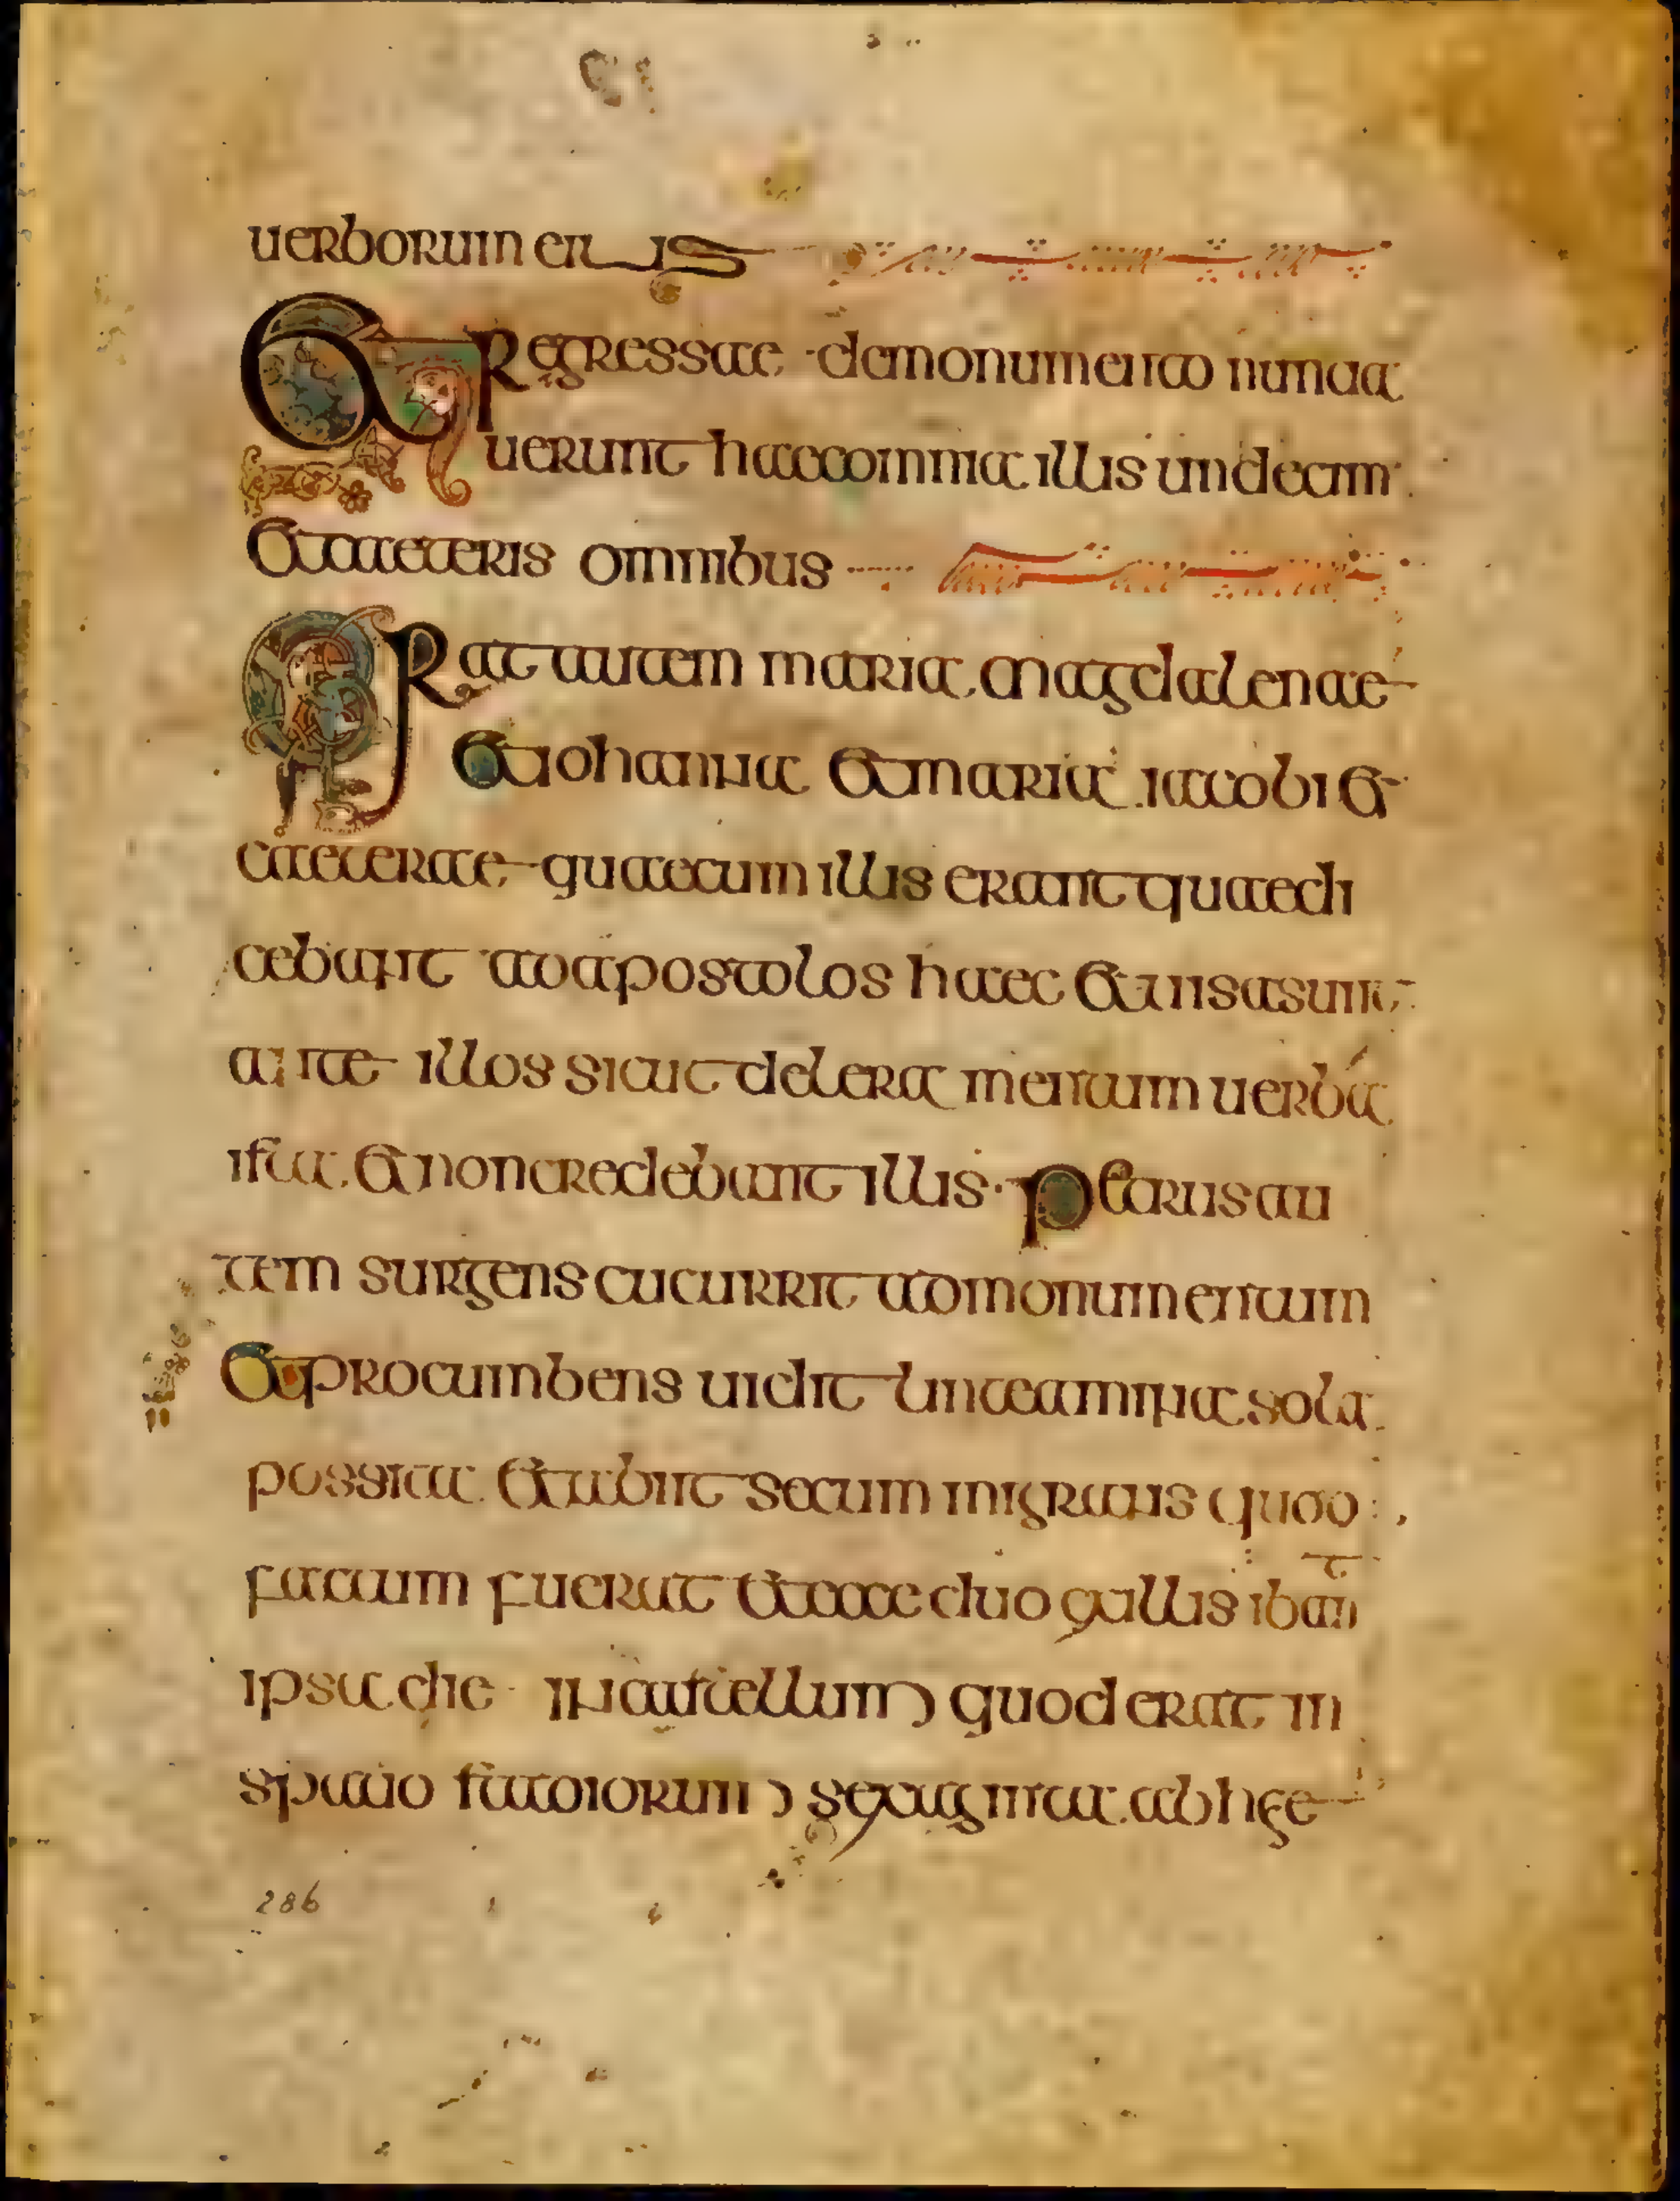 uerborum eius
Et regressae demonumento nuntia
uerunt haecomnia illis undecim
Et caeteris omnibus
Erat autem maria magdalenae
Et iohanna Et maria iacobi Et
caeterae quaecum illis erant quaedi
cebant ad apostolos haec Et uisa sunt
ante illos sicut delera mentum uerba
ista Et noncredebant illis Petrus au
tem surgens cucurrit admonumentum
Et procumbens uidit linteamina sola
possita Et abiit secum migrans quod
factum fuerat Et ecce duo exillis ibant
ipsa die in castellum quod erat in
spatio stadiorum sexaginta ab hie
286